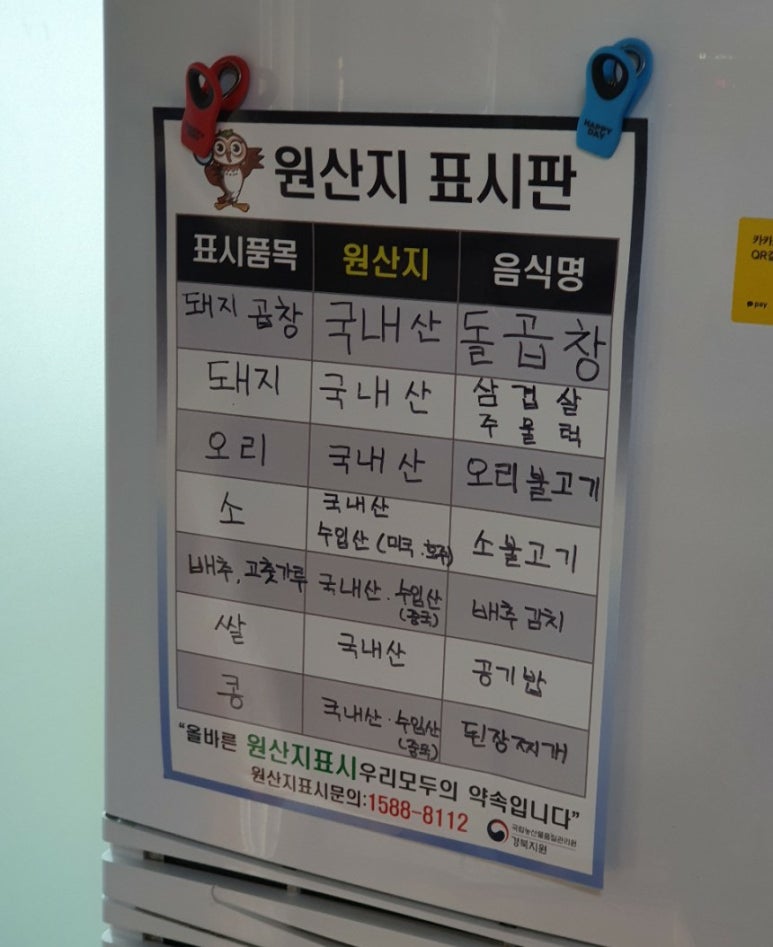 HAPPY DAY
HAPPY DAY
원산지 표시판
표시품목 원산지 음식명
돼지 곱창 국내산 돌곱창
돼지 국내산 삼겹살
주물럭
오리 국내산 오리불고기
소 국내산
수입산 (미국.호주) 소불고기
배추, 고춧가루 국내산·수입산
(중국) 배추김치
쌀 국내산 공기밥
콩 국내산·수입산
(중국) 된장찌개
“올바른 원산지표시 우리모두의 약속입니다”
원산지표시문의:1588-8112
국립농산물품질관리원
경북지원
카카
QR결
pay